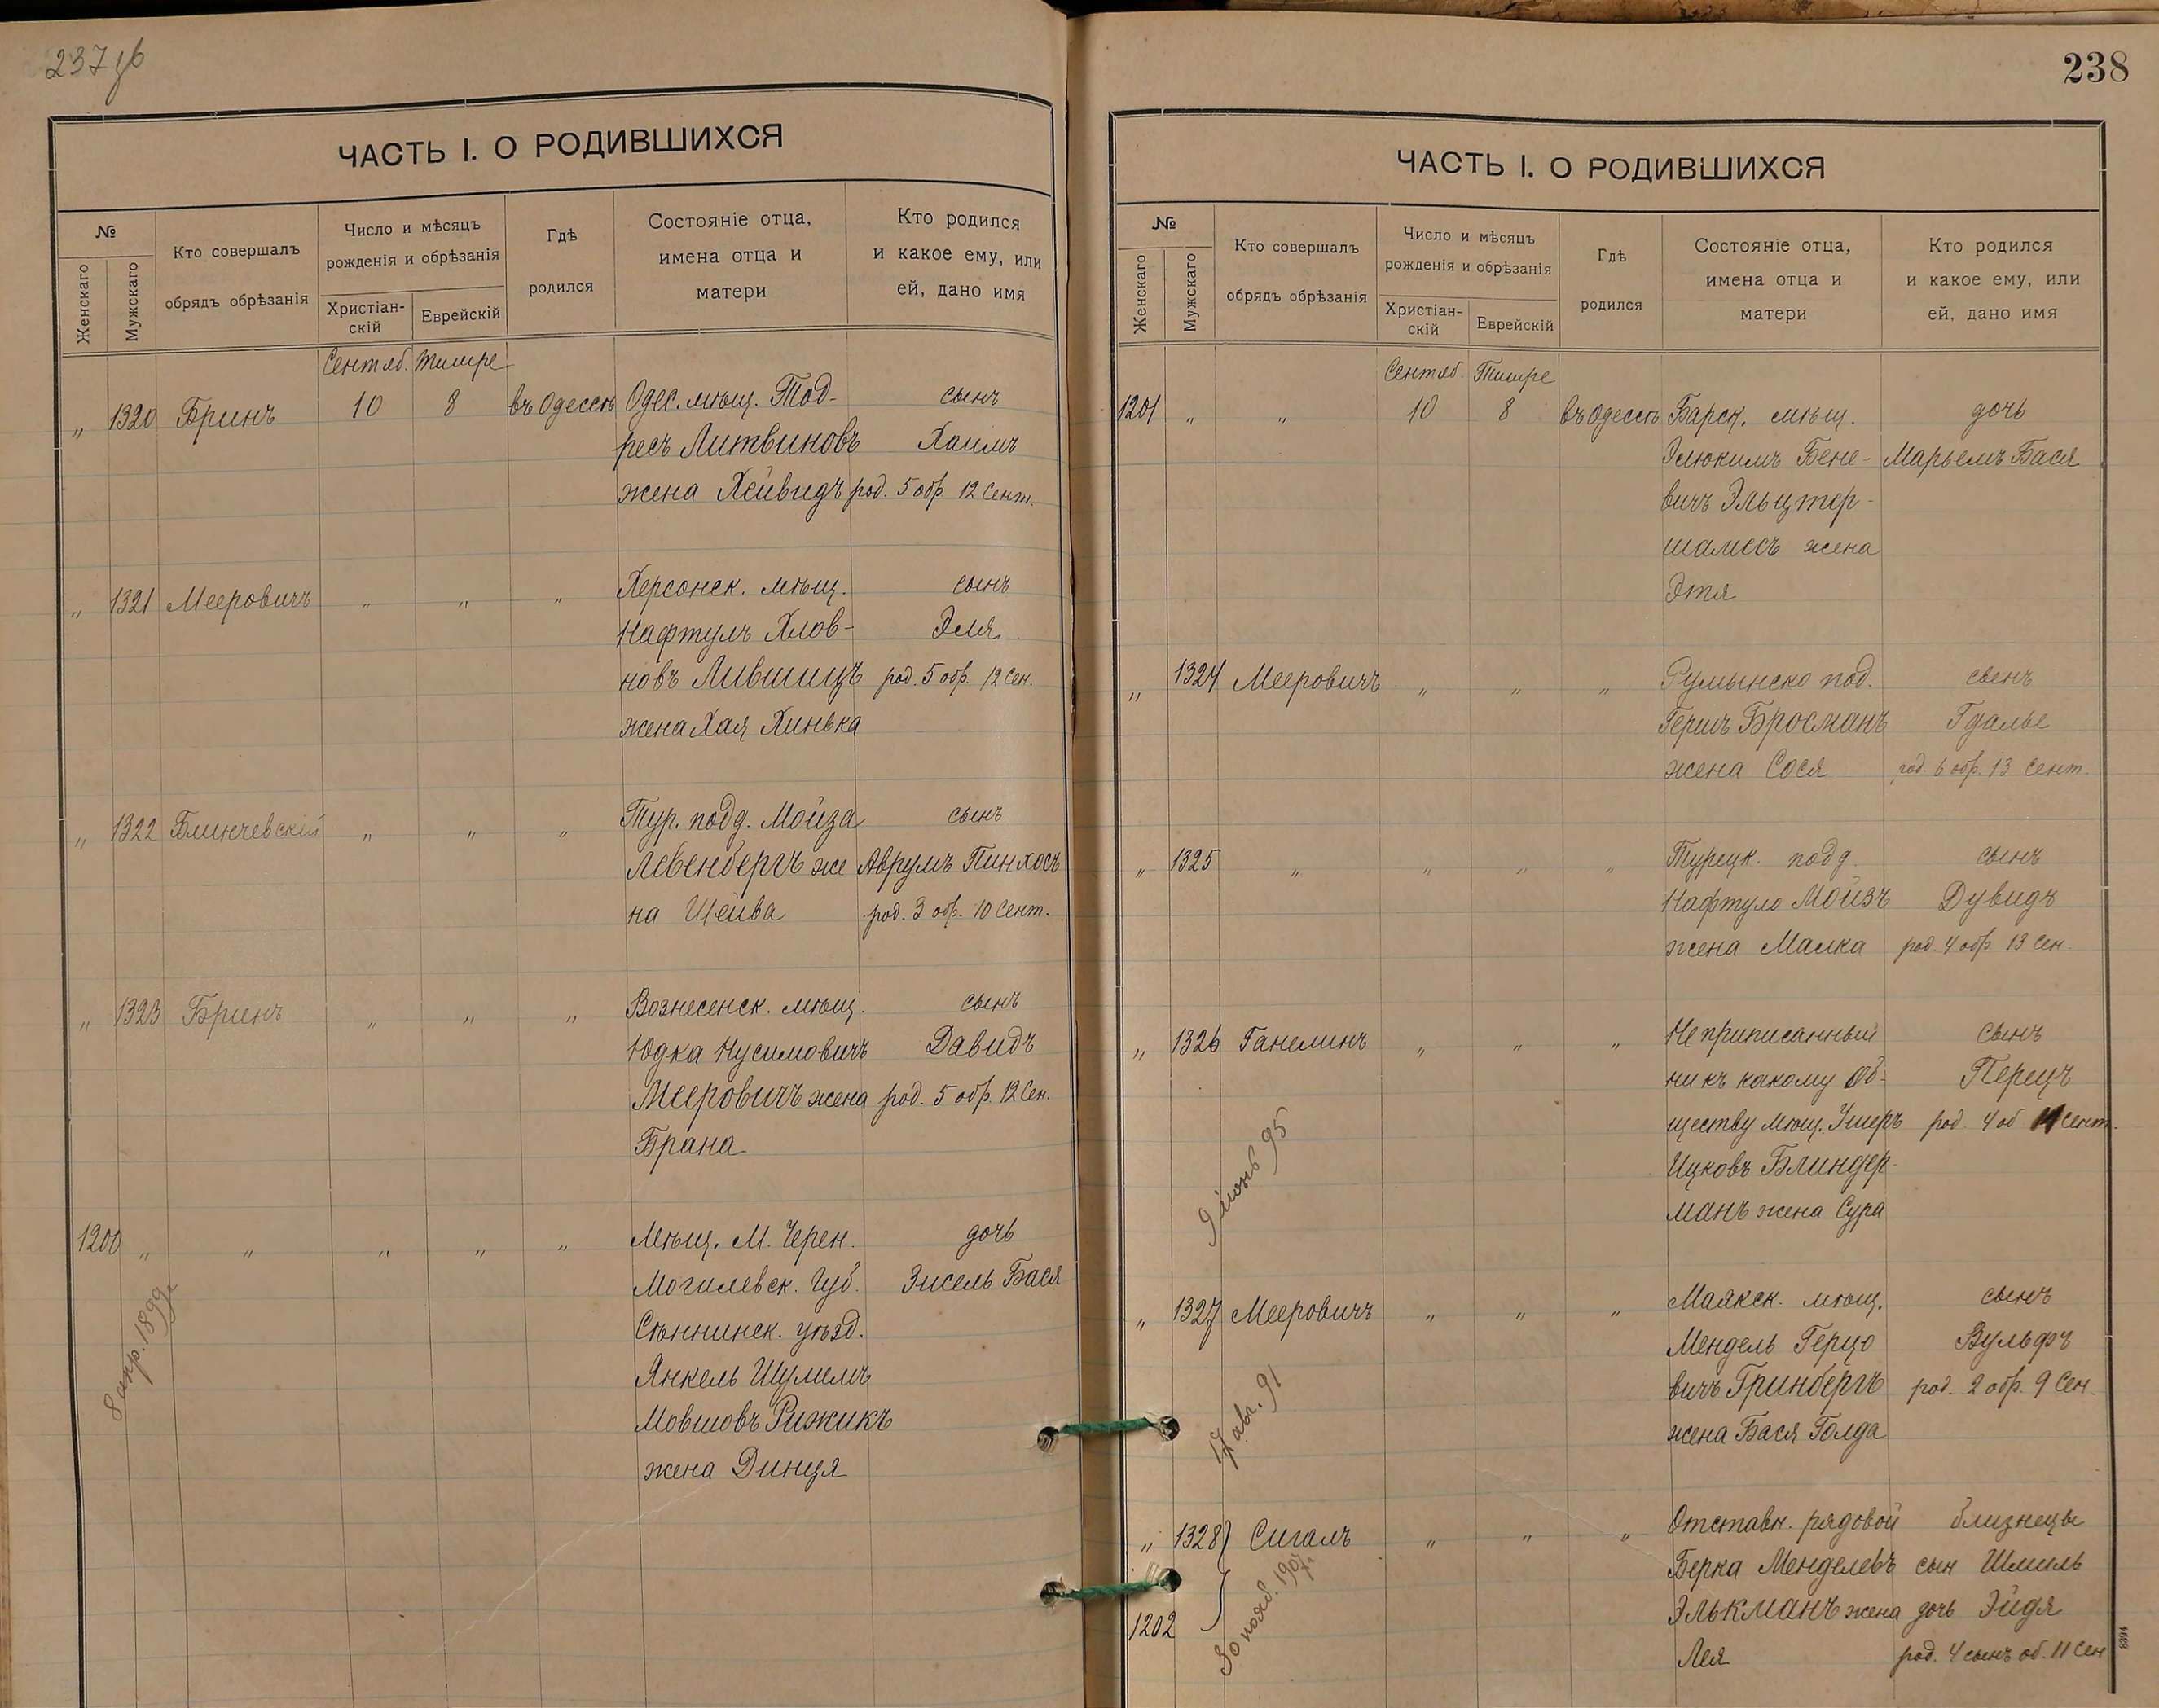 237 об
ЧАСТЬ I. О РОДИВШИХСЯ
№
Женскаго
Мужскаго
Кто совершалъ
обрядъ обрѣзанія
Число и мѣсяцъ
рожденія и обрѣзанія
Христіан-
скій
Еврейскій
Гдѣ
родился
Состояніе отца,
имена отца и
матери
Кто родился
и какое ему, или
ей, дано имя
Сентяб. Тишре
„ 1320 Бринъ 10 8 въ Одессѣ Одес. мѣщ. Тод- сынъ
ресъ Литвиновъ Хаимъ
жена Хейвидъ род. 5 обр. 12 Сент.
„ 1321 Мееровичъ „ „ „ Херсонск. мѣщ. сынъ
Нафтулъ Хлов- Эля
новъ Лившицъ род. 5 обр. 12 Сен.
жена Хая Хинька
„ 1322 Блинчевскій „ „ „ Тур. подд. Мойза сынъ
Левенбергъ же Аврумъ Пинхосъ
на Шейва род. 3 обр. 10 Сент.
„ 1323 Бринъ „ „ „ Вознесенск. мѣщ. сынъ
Юдка Нусимовичъ Давидъ
Мееровичъ жена род. 5 обр. 12 Сен.
Брана
1200 „ „ „ „ „ Мѣщ. М. Черен. дочь
Могилевск. Губ. Зисель Бася
Сѣннинск. уѣзд.
Янкель Шулимъ
Мовшовъ Рижикъ
жена Динця
8 апр. 1899 г
238
ЧАСТЬ I. О РОДИВШИХСЯ
№
Женскаго
Мужскаго
Кто совершалъ
обрядъ обрѣзанія
Число и мѣсяцъ
рожденія и обрѣзанія
Христіан-
скій
Еврейскій
Гдѣ
родился
Состояніе отца,
имена отца и
матери
Кто родился
и какое ему, или
ей, дано имя
Сентяб. Тишре
1201 „ „ 10 8 въ Одессѣ Барск. мѣщ. дочь
Элюкимъ Бене- Марьемъ Бася
вичъ Эльцтер-
шамесъ жена
Этя
„ 1324 Мееровичъ „ „ „ Румынско под. сынъ
Гершъ Бросманъ Гдалье
жена Сося род. 6 обр. 13 Сент.
„ 1325 „ „ „ „ Турецк. подд. сынъ
Нафтуло Мойзъ Дувидъ
жена Малка род. 4 обр. 13 Сен.
„ 1326 Ганелинъ „ „ „ Не приписанный сынъ
ни къ какому об- Перецъ
ществу мѣщ. Ушеръ род. 4 об 11 Сент.
Ицковъ Блиндер-
манъ жена Сура
9 іюнь 95
„ 1327 Мееровичъ „ „ „ Маякск. мѣщ. сынъ
Мендель Герцо Вульфъ
вичъ Гринбергъ род. 2 обр. 9 Сен.
жена Бася Голда
17 авг. 91
„ 1328 Сигалъ „ „ „ Отставн. рядовой близнецы
Берка Менделевъ сын Шмиль
1202 Элькманъ жена дочь Эйдя
Лея род. 4 сынъ об. 11 Сен
30 нояб. 1907 г
8394